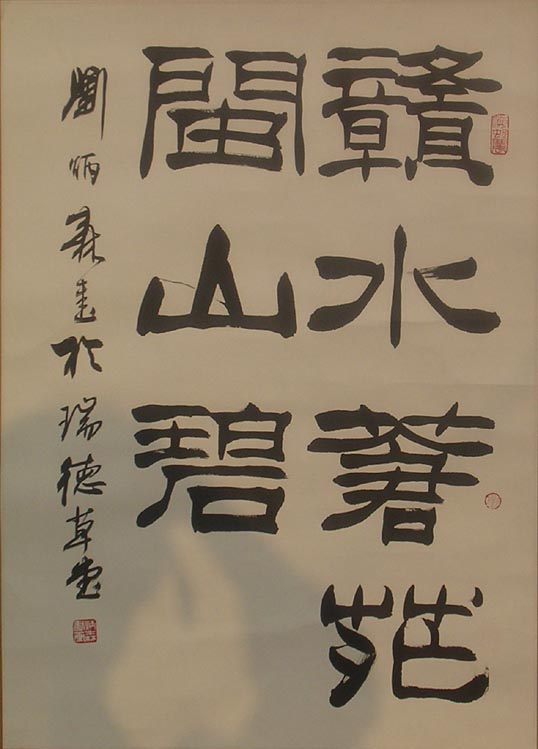 贛水蒼茫
閩山碧
劉炳森書於瑞德草堂